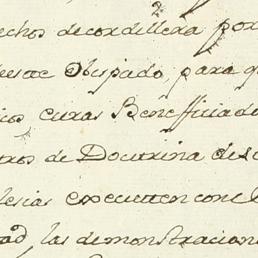 echos de cordillera por
deese Obispado, para q
ios curas Beneficiado
tros de Doctrina des
lesias executen con el
ad, las demonstracion